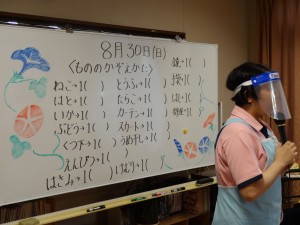 8月30日(日)
〈もののかぞえかた〉
ねこ→1( )
はと→1( )
いか→1( )
ぶどう→1( )
くつ下→1( )
えんぴつ→1( )
はさみ→1( )
とうふ→1( )
たらこ→1( )
カーテン→1( )
スカート→1( )
うめぼし→1( )
鏡→1( )
手袋→1( )